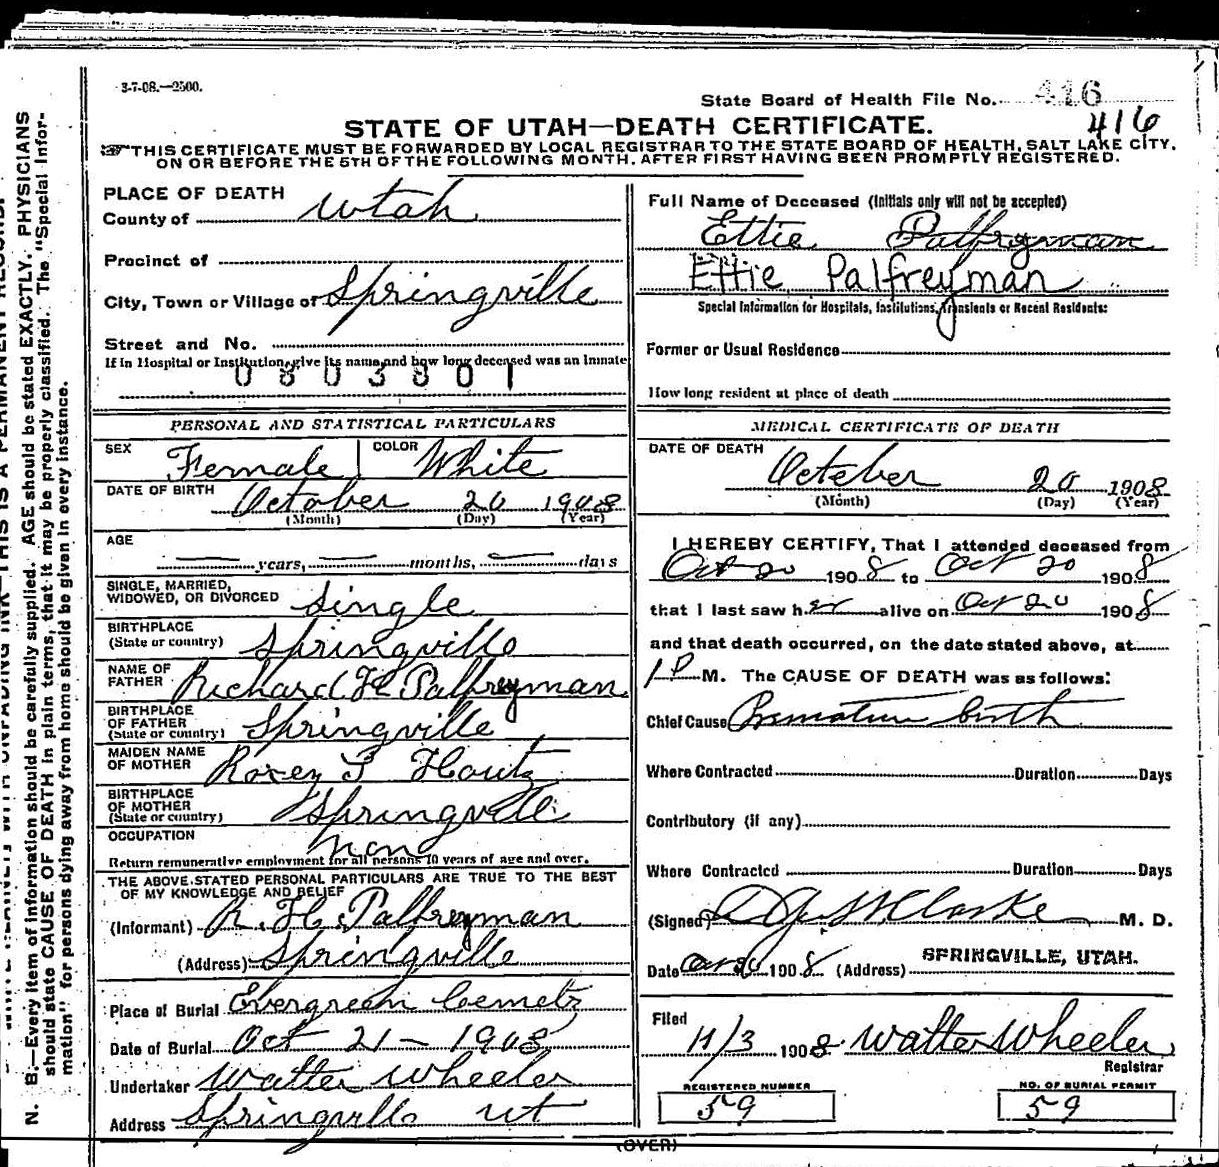 3-7-08.—2500.
State Board of Health File No. 416
416
STATE OF UTAH—DEATH CERTIFICATE.
THIS CERTIFICATE MUST BE FORWARDED BY LOCAL REGISTRAR TO THE STATE BOARD OF HEALTH, SALT LAKE CITY,
ON OR BEFORE THE 5TH OF THE FOLLOWING MONTH, AFTER FIRST HAVING BEEN PROMPTLY REGISTERED.
PLACE OF DEATH
County of Utah
Precinct of
City, Town or Village of Springville
Street and No.
If in Hospital or Institution, give its name and how long deceased was an inmate
0803801
PERSONAL AND STATISTICAL PARTICULARS
SEX Female COLOR White
DATE OF BIRTH October 20 1908
(Month) (Day) (Year)
AGE
years, months, days
SINGLE, MARRIED,
WIDOWED, OR DIVORCED Single
BIRTHPLACE
(State or country) Springville
NAME OF
FATHER Richard H Palfreyman
BIRTHPLACE
OF FATHER
(State or country) Springville
MAIDEN NAME
OF MOTHER Roxey S Houtz
BIRTHPLACE
OF MOTHER
(State or country) Springville
OCCUPATION
Non
Return remunerative employment for all persons 10 years of age and over.
THE ABOVE STATED PERSONAL PARTICULARS ARE TRUE TO THE BEST
OF MY KNOWLEDGE AND BELIEF
(Informant) R. H. Palfreyman
(Address) Springville
Place of Burial Evergreen Cemetz
Date of Burial Oct 21 - 1908
Undertaker Walter Wheeler
Address Springville Ut
Full Name of Deceased (Initials only will not be accepted)
Ettie Palfreyman
Effie Palfreyman
Special Information for Hospitals, Institutions, Transients or Recent Residents:
Former or Usual Residence
How long resident at place of death
MEDICAL CERTIFICATE OF DEATH
DATE OF DEATH
October 20 1908
(Month) (Day) (Year)
I HEREBY CERTIFY, That I attended deceased from
Oct 20 1908 to Oct 20 1908
that I last saw her alive on Oct 20 1908
and that death occurred, on the date stated above, at
1 P M. The CAUSE OF DEATH was as follows:
Chief Cause Premature birth
Where Contracted Duration Days
Contributory (if any)
Where Contracted Duration Days
(Signed) Clarke M. D.
Date Oct 20 1908 (Address) SPRINGVILLE, UTAH.
Filed
11/3 1908 Walter Wheeler
Registrar
REGISTERED NUMBER
59
NO. OF BURIAL PERMIT
59
(OVER)
N. B.—Every item of information should be carefully supplied. AGE should be stated EXACTLY. PHYSICIANS
should state CAUSE OF DEATH in plain terms, that it may be properly classified. The "Special Infor-
mation" for persons dying away from home should be given in every instance.